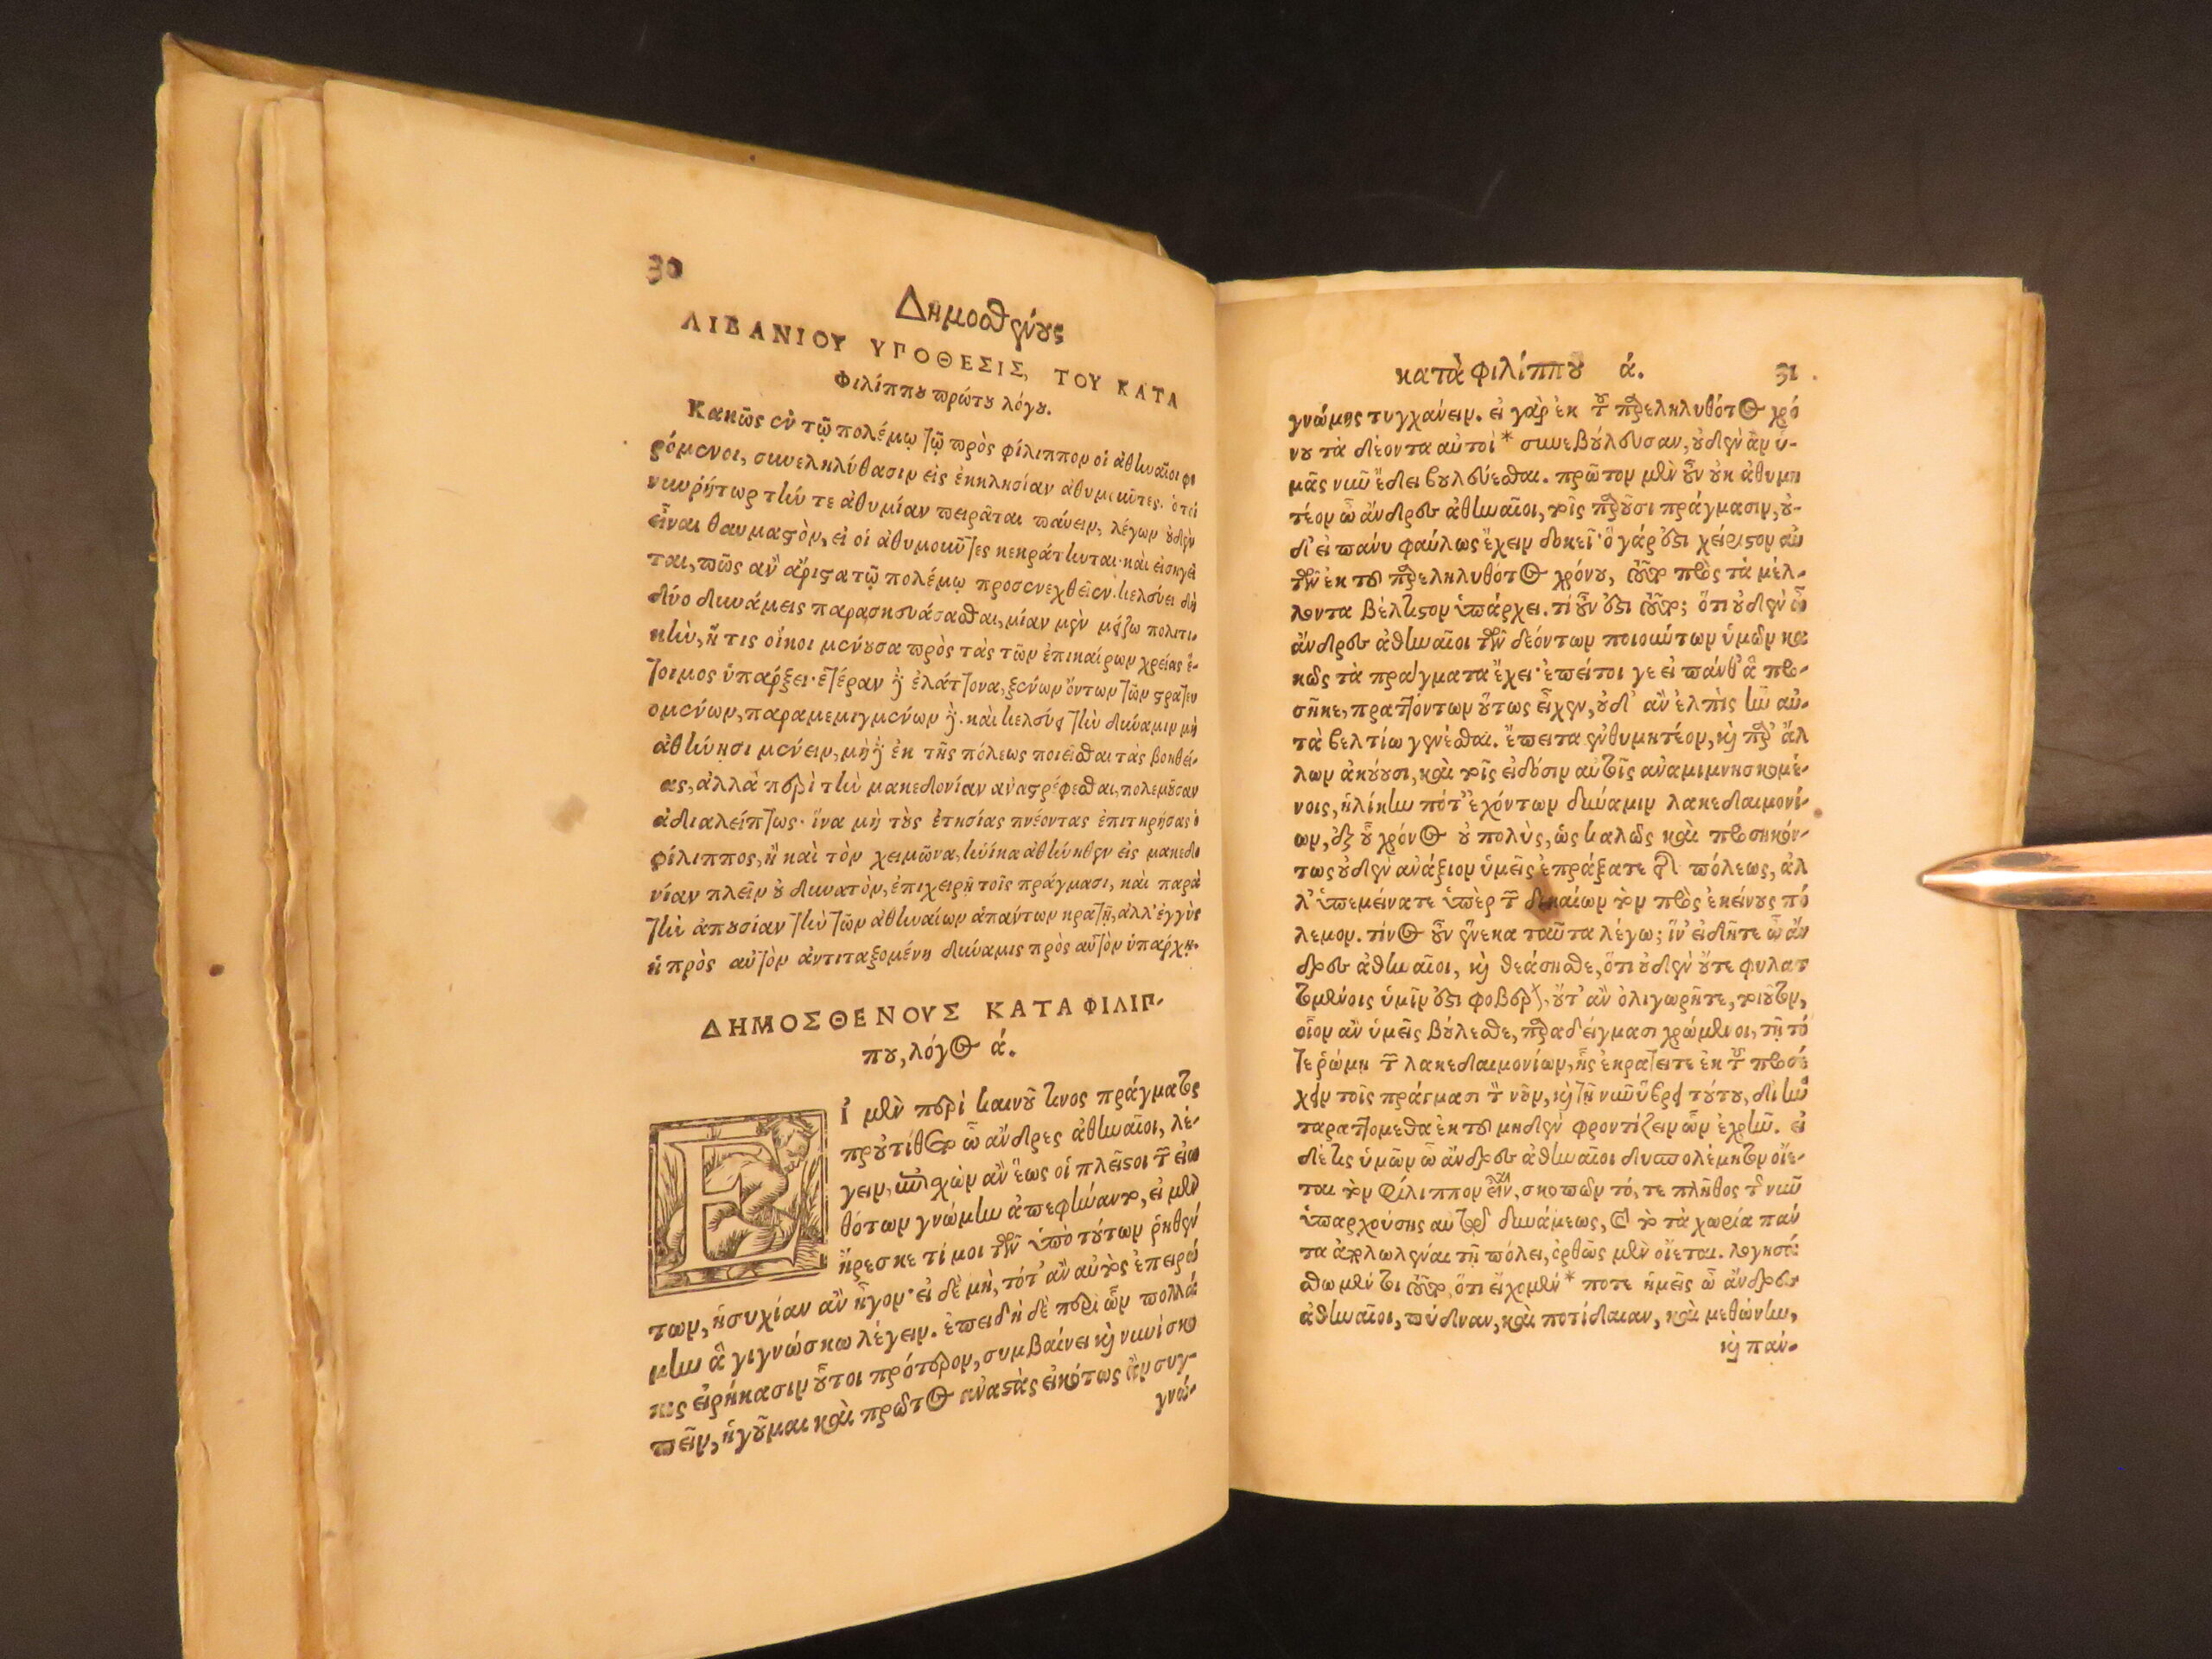 30
Δημοσθένους
ΛΙΒΑΝΙΟΥ ΥΠΟΘΕΣΙΣ, ΤΟΥ ΚΑΤΑ
Φιλίππου πρώτου λόγου.
Κακῶς ἐν τῷ πολέμῳ τῷ πρὸς φίλιππον οἱ ἀθηναῖοι φε
ρόμενοι, συνεληλύθασιν εἰς ἐκκλησίαν ἀθυμοῦντες. ὁ τοί
νυν ῥήτωρ τήν τε ἀθυμίαν πειρᾶται παύειν, λέγων οὐδὲν
εἶναι θαυμαστὸν, εἰ οἱ ἀθυμοῦντες κεκράτηνται· καὶ εἰσηγεῖ
ται, πῶς ἂν ἄριστα τῷ πολέμῳ προσενεχθεῖεν. κελεύει δὴ
δύο δυνάμεις παρασκευάσασθαι, μίαν μὲν μείζω πολιτι-
κὴν, ἥ τις οἴκοι μένουσα πρὸς τὰς τῶν ἐπικαίρων χρείας ἕ-
τοιμος ὑπάρξει· ἑτέραν δὲ ἐλάττονα, ξένων ὄντων τῶν στρατευ
ομένων, παραμεμιγμένων δὲ. καὶ κελεύει τὴν δύναμιν μὴ
ἀθήνησι μένειν, μὴ δὲ ἐκ τῆς πόλεως ποιεῖσθαι τὰς βοηθεί-
ας, ἀλλὰ περὶ τὴν μακεδονίαν ἀναστρέφεσθαι, πολεμοῦσαν
ἀδιαλείπτως· ἵνα μὴ τοὺς ἐτησίας πνέοντας ἐπιτηρήσας ὁ
φίλιππος, ἢ καὶ τὸν χειμῶνα, ἡνίκα ἀθήνηθεν εἰς μακεδο
νίαν πλεῖν οὐ δυνατὸν, ἐπιχειρῇ τοῖς πράγμασι, καὶ παρὰ
τὴν ἀπουσίαν τὴν τῶν ἀθηναίων ἁπάντων κρατῇ, ἀλλ' ἐγγὺς
ἡ πρὸς αὐτὸν ἀντιταξομένη δύναμις πρὸς αὐτὸν ὑπάρχῃ.
ΔΗΜΟΣΘΕΝΟΥΣ ΚΑΤΑ ΦΙΛΙΠ-
που, λόγος ά.
Εἰ μὲν περὶ καινοῦ τινος πράγματος
προυτίθετο ὦ ἄνδρες ἀθηναῖοι, λέ-
γειν, ἐπισχὼν ἂν ἕως οἱ πλεῖστοι τῶν εἰω
θότων γνώμην ἀπεφήναντο, εἰ μὲν
ἤρεσκε τί μοι τῶν ὑπὸ τούτων ῥηθέν
των, ἡσυχίαν ἂν ἦγον· εἰ δὲ μὴ, τότ' ἂν αὐτὸς ἐπειρώ
μην ἃ γιγνώσκω λέγειν. ἐπειδὴ δὲ περὶ ὧν πολλά
κις εἰρήκασιν οὗτοι πρότερον, συμβαίνει καὶ νυνὶ σκο
πεῖν, ἡγοῦμαι καὶ πρῶτος ἀναστὰς εἰκότως ἂν συγ-
γνώ-
κατὰ φιλίππου ά.
31
γνώμης τυγχάνειν. εἰ γὰρ ἐκ τοῦ παρεληλυθότος χρό
νου τὰ δέοντα αὐτοὶ* συνεβούλευσαν, οὐδὲν ἂν ὑ-
μᾶς νῦν ἔδει βουλεύεσθαι. πρῶτον μὲν οὖν οὐκ ἀθυμη
τέον ὦ ἄνδρες ἀθηναῖοι, τοῖς παροῦσι πράγμασιν, οὐ-
δ' εἰ πάνυ φαύλως ἔχειν δοκεῖ· ὃ γάρ ἐστι χείριστον αὐ
τῶν ἐκ τοῦ παρεληλυθότος χρόνου, τοῦτο πρὸς τὰ μέλ-
λοντα βέλτιστον ὑπάρχει. τί οὖν ἐστι τοῦτο; ὅτι οὐδὲν ὦ
ἄνδρες ἀθηναῖοι τῶν δεόντων ποιούντων ὑμῶν κα
κῶς τὰ πράγματα ἔχει· ἐπείτοι γε εἰ πάνθ' ἃ προ-
σῆκε, πραττόντων οὕτως εἶχεν, οὐδ' ἂν ἐλπὶς ἦν αὐ-
τὰ βελτίω γενέσθαι. ἔπειτα ἐνθυμητέον, καὶ παρ' ἄλ
λων ἀκούουσι, καὶ τοῖς εἰδόσιν αὐτοῖς ἀναμιμνησκομέ-
νοις, ἡλίκην πότ' ἐχόντων δύναμιν λακεδαιμονί-
ων, ἐξ οὗ χρόνος οὐ πολὺς, ὡς καλῶς καὶ προσηκόν-
τως οὐδὲν ἀνάξιον ὑμεῖς ἐπράξατε τῆς πόλεως, ἀλ
λ' ὑπεμείνατε ὑπὲρ τῶν δικαίων τὸν πρὸς ἐκείνους πό
λεμον. τίνος οὖν ἕνεκα ταῦτα λέγω; ἵν' εἰδῆτε ὦ ἄν
δρες ἀθηναῖοι, καὶ θεάσησθε, ὅτι οὐδὲν οὔτε φυλατ
τομένοις ὑμῖν ἐστι φοβερὸν, οὔτ' ἂν ὀλιγωρῆτε, τοιοῦτον,
οἷον ἂν ὑμεῖς βούλεσθε, παραδείγμασι χρώμενοι, τῇ τό
τε ῥώμῃ τῶν λακεδαιμονίων, ἧς ἐκρατεῖτε ἐκ τοῦ προσέ
χειν τοῖς πράγμασι τὸν νοῦν, καὶ τῇ νῦν ὕβρει τούτου, δι' ἣν
ταραττόμεθα ἐκ τοῦ μηδὲν φροντίζειν ὧν ἐχρῆν. εἰ
δέ τις ὑμῶν ὦ ἄνδρες ἀθηναῖοι δυσπολέμητον οἴε-
ται τὸν Φίλιππον εἶναι, σκοπῶν τό, τε πλῆθος τῆς νῦν
ὑπαρχούσης αὐτῷ δυνάμεως, καὶ τὸ τὰ χωρία πάν
τα ἀπολωλέναι τῇ πόλει, ὀρθῶς μὲν οἴεται. λογισά-
σθω μέντοι τοῦτο, ὅτι εἴχομέν* ποτε ἡμεῖς ὦ ἄνδρες
ἀθηναῖοι, πύδναν, καὶ ποτίδαιαν, καὶ μεθώνην,
καὶ πάν-